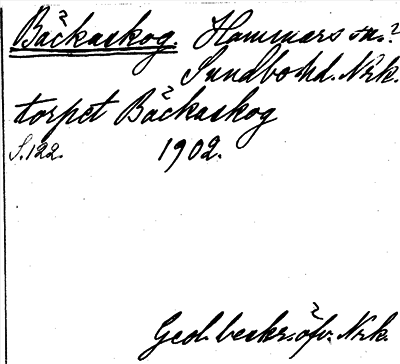 Bäckaskog. Hammars sn.?
Sundbo hd. Nrk.
torpet Bäckaskog
S.122. 1902.
Geol. beskr. öfv. Nrk.